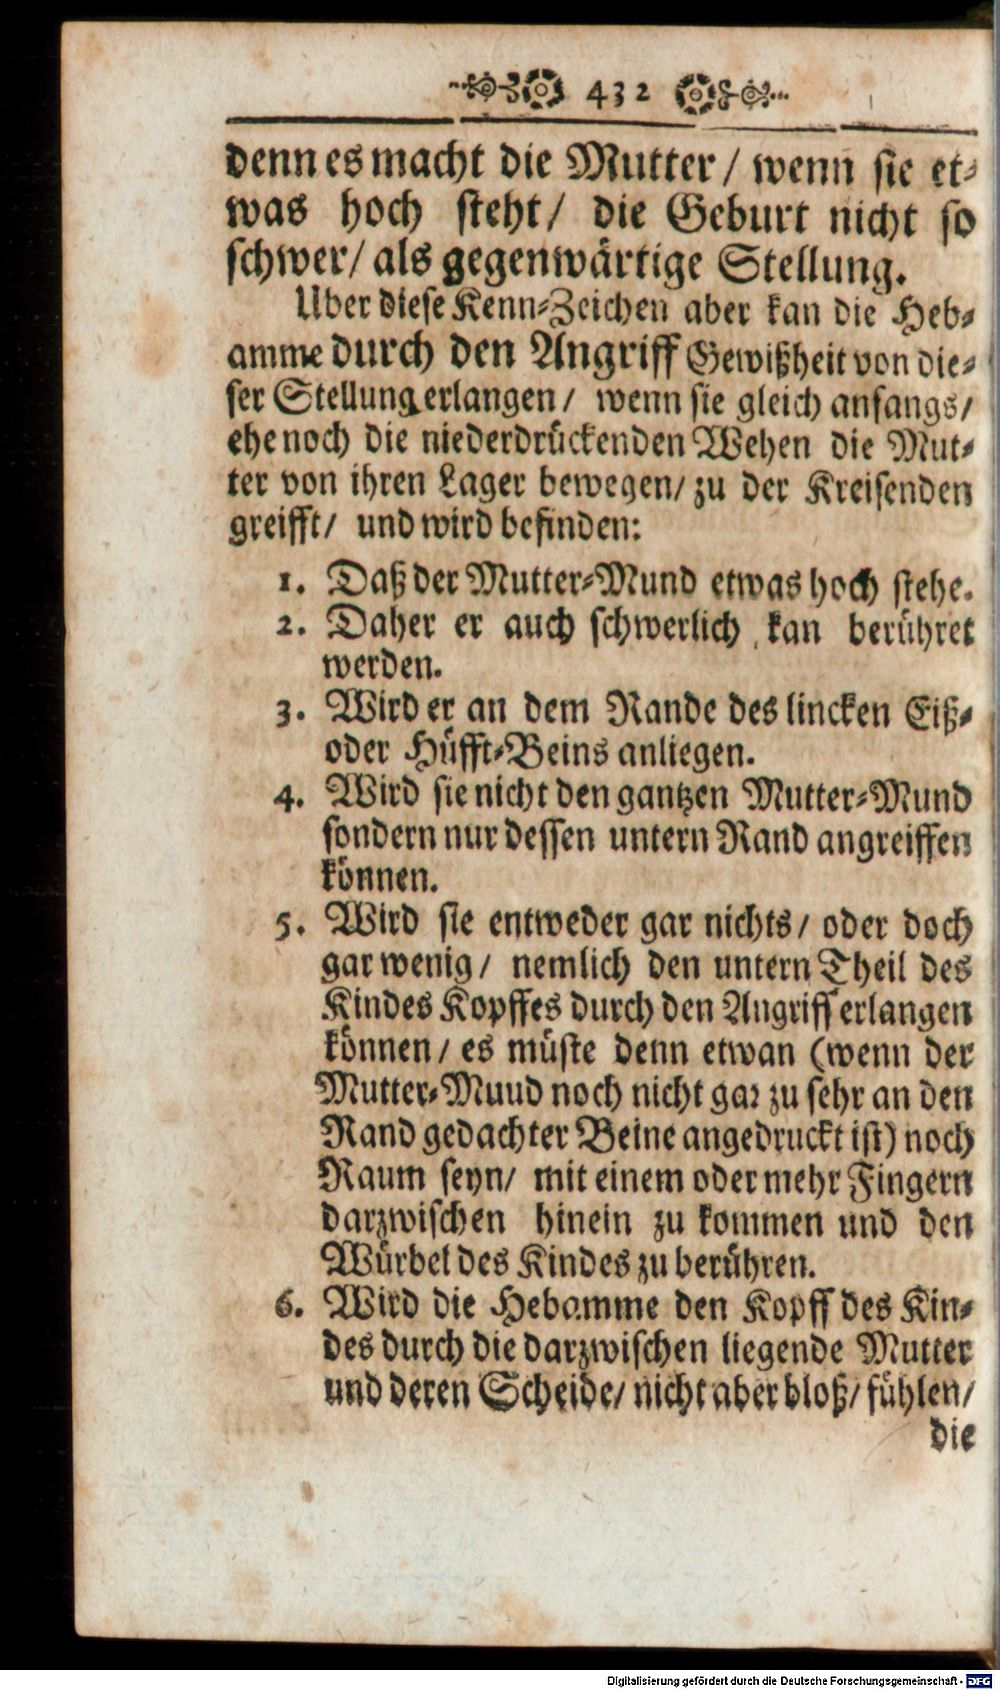 432
denn es macht die Mutter / wenn sie et⸗
was hoch steht / die Geburt nicht so
schwer / als gegenwärtige Stellung.
Uber diese Kenn⸗Zeichen aber kan die Heb⸗
amme durch den Angriff Gewißheit von die⸗
ser Stellung erlangen / wenn sie gleich anfangs /
ehe noch die niederdrückenden Wehen die Mut⸗
ter von ihren Lager bewegen / zu der Kreisenden
greifft / und wird befinden:
1. Daß der Mutter⸗Mund etwas hoch stehe.
2. Daher er auch schwerlich kan berühret
werden.
3. Wird er an dem Rande des lincken Eiß⸗
oder Hüfft⸗Beins anliegen.
4. Wird sie nicht den gantzen Mutter⸗Mund
sondern nur dessen untern Rand angreiffen
können.
5. Wird sie entweder gar nichts / oder doch
gar wenig / nemlich den untern Theil des
Kindes Kopffes durch den Angriff erlangen
können / es müste denn etwan (wenn der
Mutter⸗Muud noch nicht gar zu sehr an den
Rand gedachter Beine angedruckt ist) noch
Raum seyn / mit einem oder mehr Fingern
darzwischen hinein zu kommen und den
Würbel des Kindes zu berühren.
6. Wird die Hebamme den Kopff des Kin⸗
des durch die darzwischen liegende Mutter
und deren Scheide / nicht aber bloß / fühlen /
die
Digitalisierung gefördert durch die Deutsche Forschungsgemeinschaft - DFG